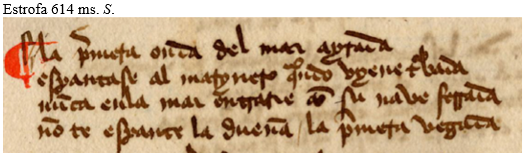 Estrofa 614 ms. S.
Sy la p̃mera onda del mar ayrada
espantase al marynero q̃ndo vyene t̃bada
nũca enla mar entrarie cõ su nave ferrada
nõ te espante la dueña la p̃mera vegada